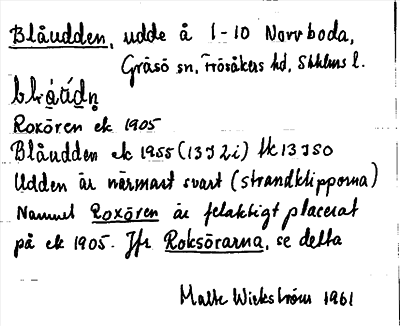 Blåudden, udde å 1-10 Norrboda,
Gräsö sn, Frösåkers hd, Sthlms l.
Roxören ek 1905
Blåudden ek 1955 (13J2i) fk 13JSO
Udden är närmast svart (strandklipporna)
Namnet Roxören är felaktigt placerat
på ek 1905. Jfr Roksörarna, se detta
Malte Wickström 1961